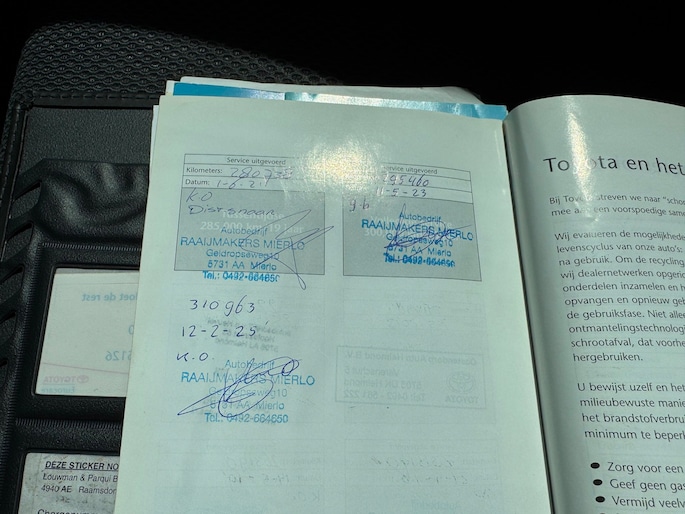 Service uitgevoerd
Kilometers: 280935
Datum: 1-6-21
K.O
Distr
Autobedrijf
RAAIJMAKERS MIERLO
Geldropseweg10
5731 AA Mierlo
Tel.: 0492-664650
Service uitgevoerd
295460
-5-23
Autobedrijf
RAAIJMAKERS MIERLO
Geldropseweg10
5731 AA Mierlo
Tel.: 0492-664650
310963
12-2-25
K.O.
Autobedrijf
RAAIJMAKERS MIERLO
Geldropseweg10
5731 AA Mierlo
Tel.: 0492-664650
Toyota en het
Bij Toyota streven we naar "schon
mee aan een voorspoedige same
Wij evalueren de mogelijkhede
levenscyclus van onze auto's:
na gebruik. Om de recycling
wij dealernetwerken opgeri
onderdelen inzamelen en h
opvangen en opnieuw geb
de gebruiksfase. Niet allee
ontmantelingstechnologi
schrootafval, dat voorhe
hergebruiken.
U bewijst uzelf en het
milieubewuste manie
het brandstofverbru
minimum te beperk
● Zorg voor een
● Geef geen gas
● Vermijd veelv
DEZE STICKER NO
Louwman & Parqui B
4940 AE Raamsdon